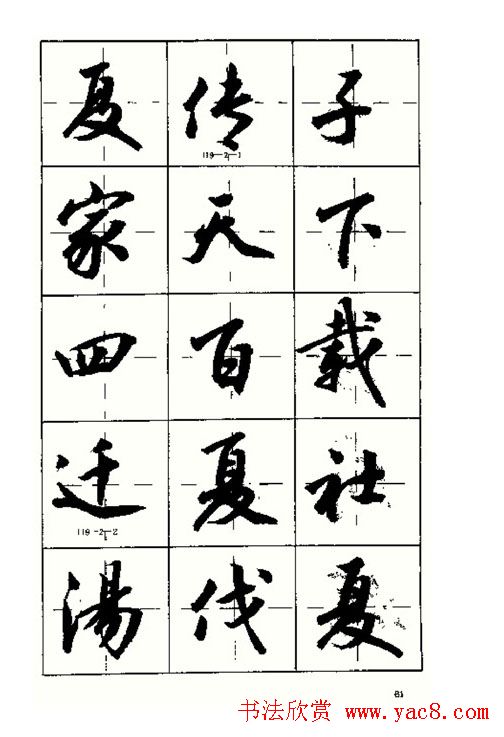 夏传子
119-2-1
家天下
四百载
迁夏社
119-2-2
湯伐夏
61
书法欣赏 www.yac8.com